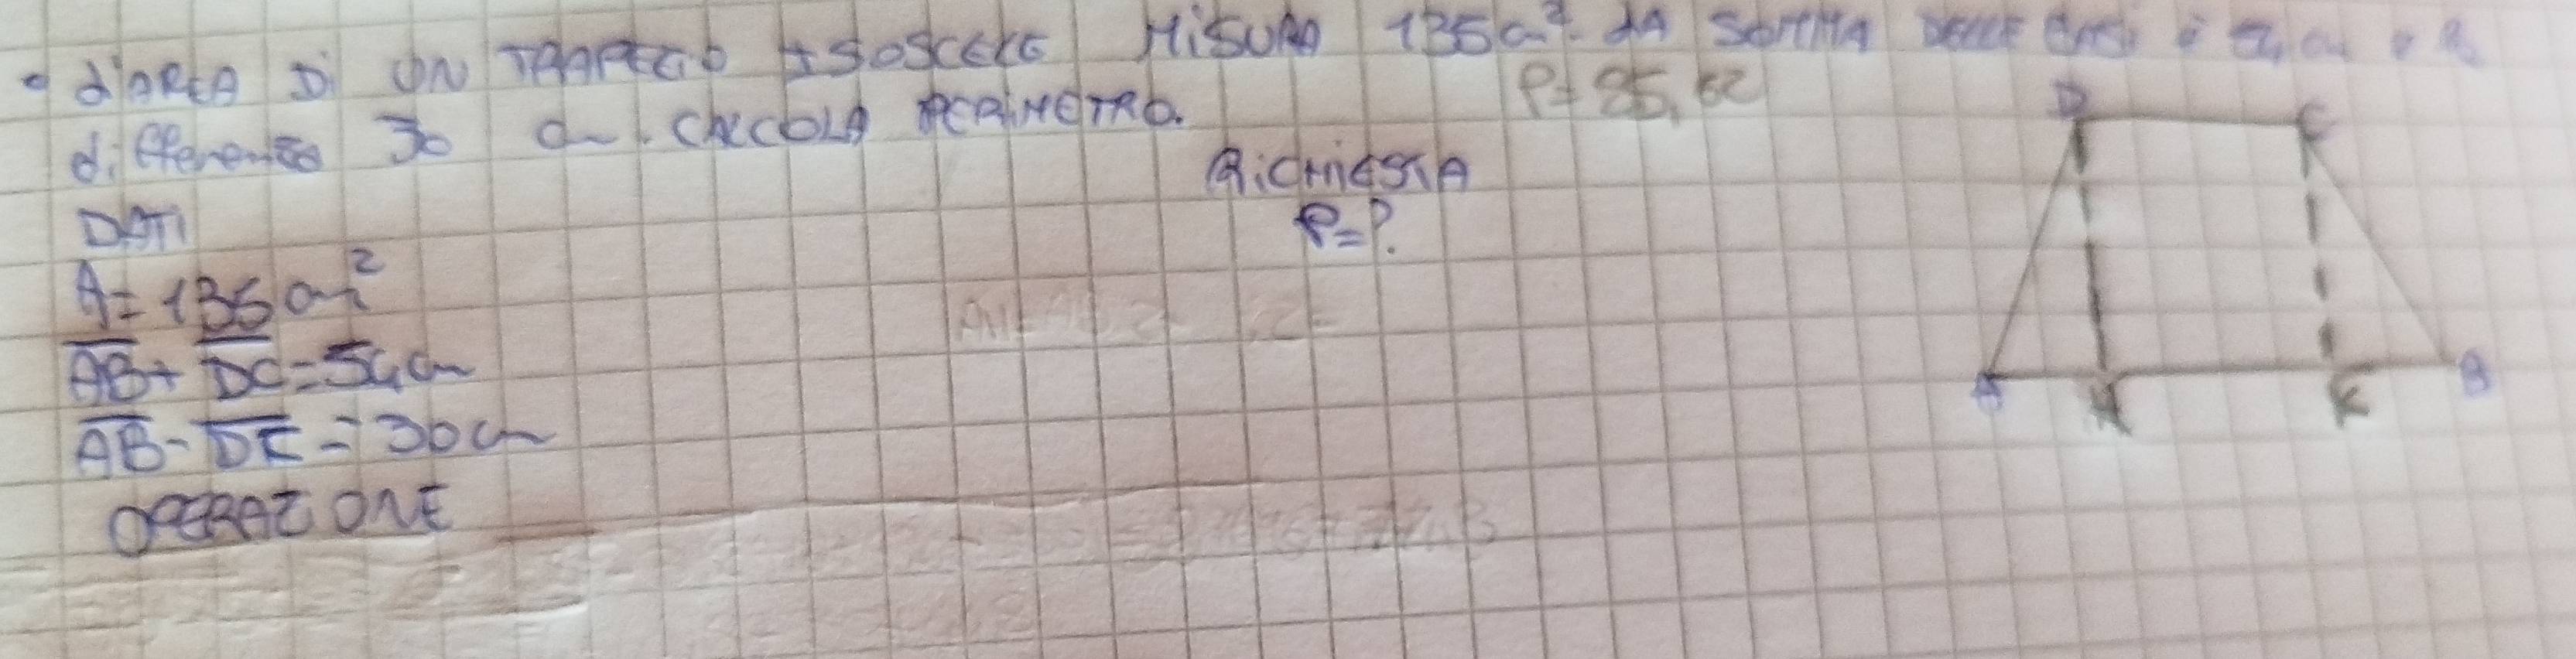 • L'AREA Di UN TRAPEZIO ISOSCELE MISURA 135 cm². LA SOMMA DELLE BASI è 54 cm e la
differenza 30 cm. CALCOLA PERIMETRO.
P= 85,62
D C
RICHIESTA
P=?
DATI
A= 135 cm²
AB+ DC=54cm
AB- DC=30cm
A H K B
OPERAZIONE